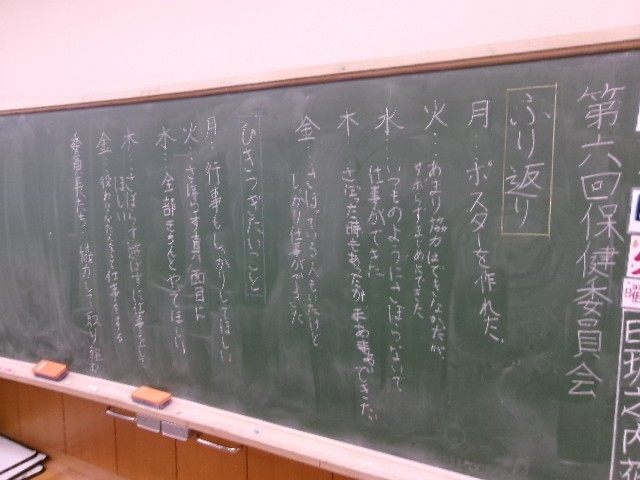 第六回保健委員会
ふり返り
月…ポスターを作れた。
火…あまり協力はできなかったが、
さぼらずまじめにできた。
水…いつものようにさぼらないで
仕事ができた。
木 さぼった時もあったが、まあまあできた。
金…さぼっている人もいたけど
しっかり仕事ができた
ひきつぎたいこと
月…行事もしっかりしてほしい
火…さぼらず真面目に
水…全部きちんとやってほしい
木…さぼらず 仕事をして
ほしい
金… 仕事をする
協力して取り組む